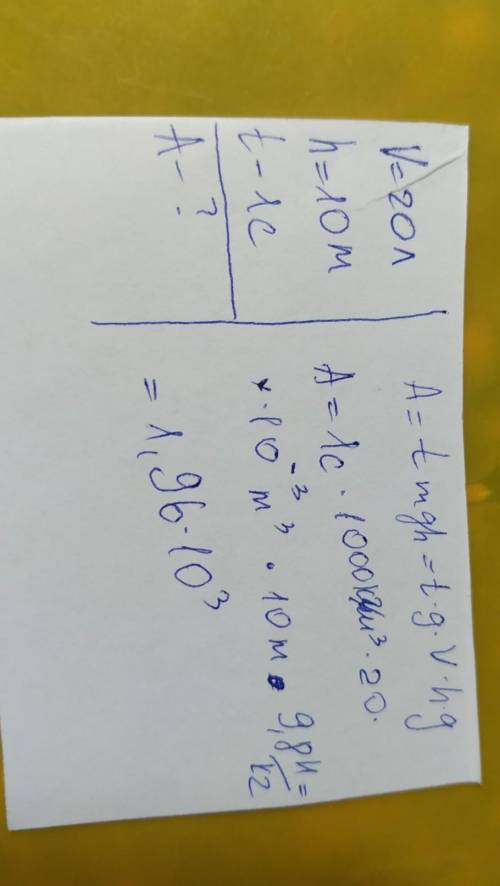 V=20л
h=10м
t-1с
A-?
A=tmgh=t·g·V·h·g
A=1с·1000кг/м³·20·
·10⁻³м³·10м·9,8Н/кг=
=1,96·10³